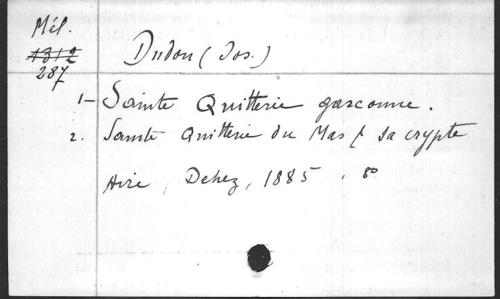 Mél.
1312
287
Dudon (Jos.)
1 – Sainte Quitterie gasconne.
2. Sainte Quitterie du Mas & sa crypte
Aire, Dehez, 1885, 8º